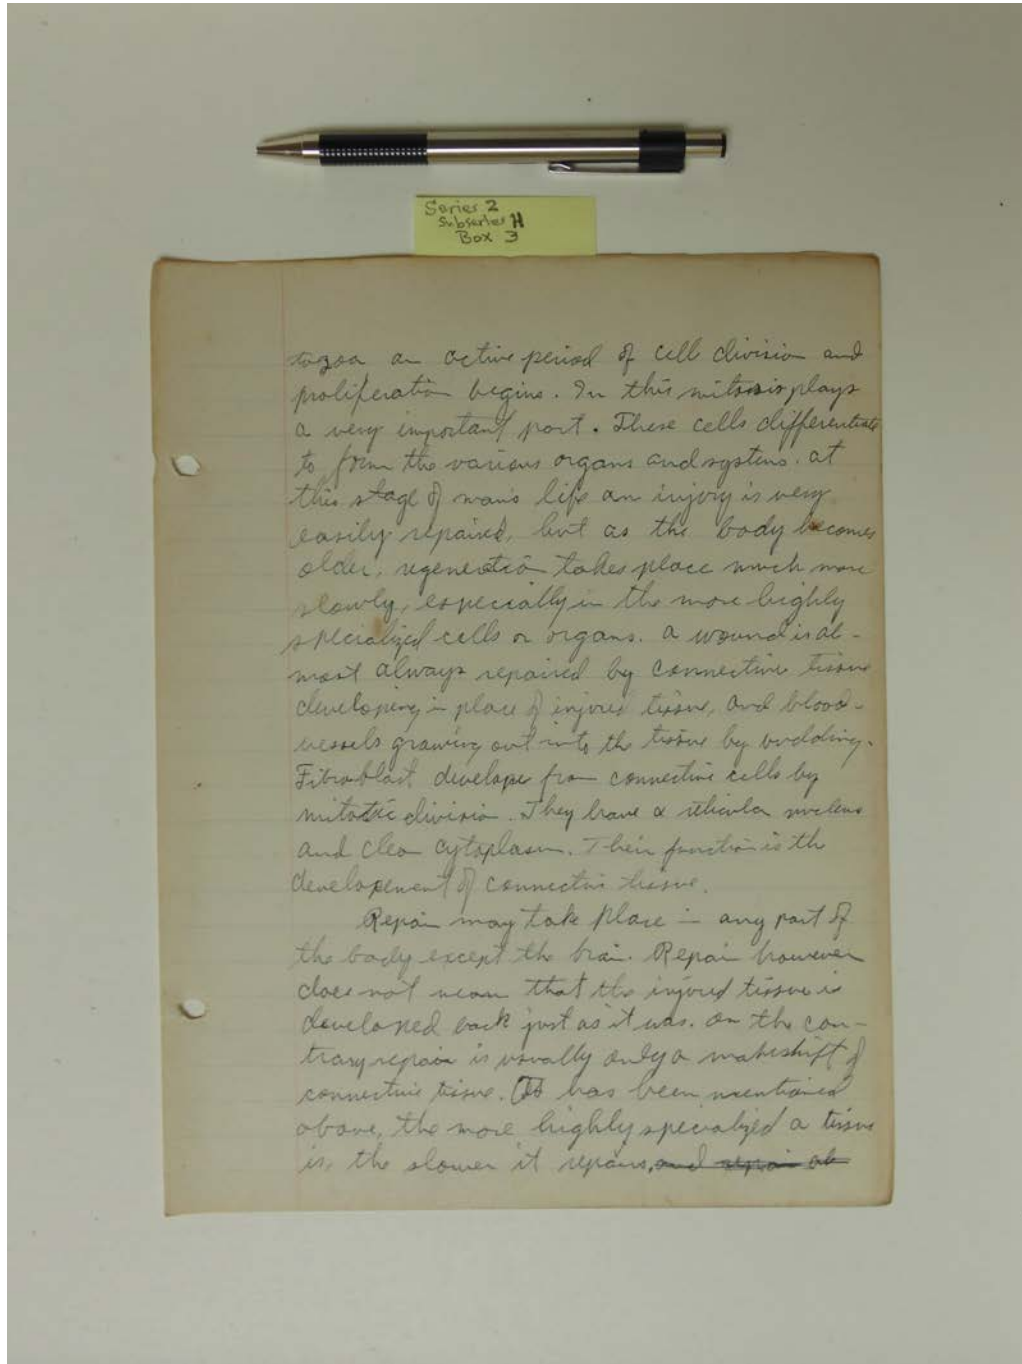 Series 2
Subseries H
Box 3
tozoa an active period of cell division and
proliferation begins. In this mitosis plays
a very important part. These cells differentiate
to form the various organs and systems. at
this stage of man's life an injury is very
easily repaired, but as the body becomes
older, regeneration takes place much more
slowly, especially in the more highly
specialized cells or organs. a wound is al-
most always repaired by connective tissue
developing in place of injured tissue, and blood-
vessels growing out into the tissue by budding.
Fibroblast develope from connective cells by
mitotic division. They have a reticular nucleus
and clear cytoplasm. Their function is the
developement of connective tissue.
Repair may take place in any part of
the body except the brain. Repair however
does not mean that the injured tissue is
developed back just as it was. on the con-
trary repair is usually only a makeshift of
connective tissue. As has been mentioned
above, the more highly specialized a tissue
is, the slower it repairs, and repair ab